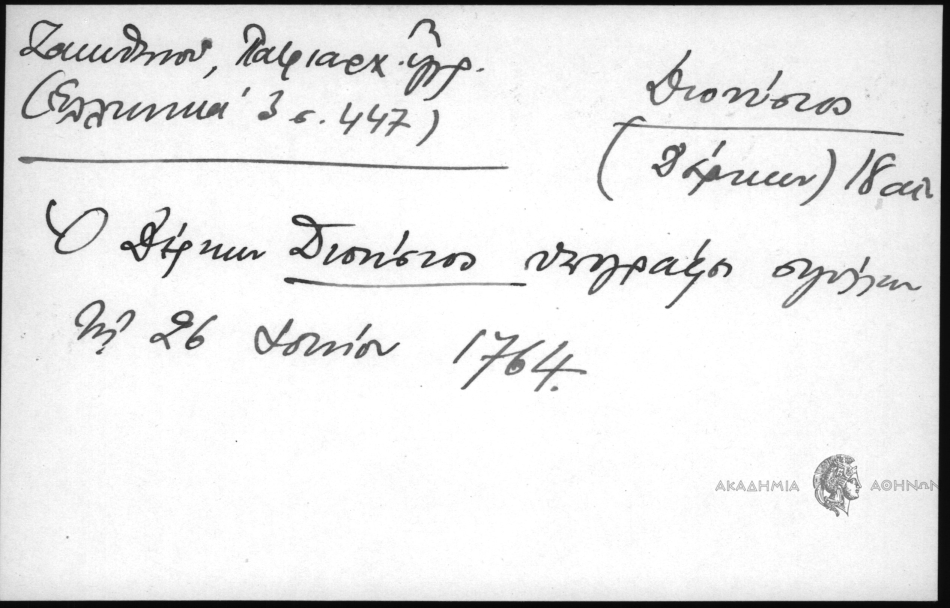 Ζακυθηνοῦ, Πατριαρχ. ἔγγρ.
(Ἑλληνικά 3 σ. 447)
Διονύσιος
(Δέρκων) 18 αἰ.
Ὁ Δέρκων Διονύσιος ὑπογράφει σιγίλλιον
τῇ 26 Ἰουνίου 1764.
ΑΚΑΔΗΜΙΑ ΑΘΗΝΩΝ